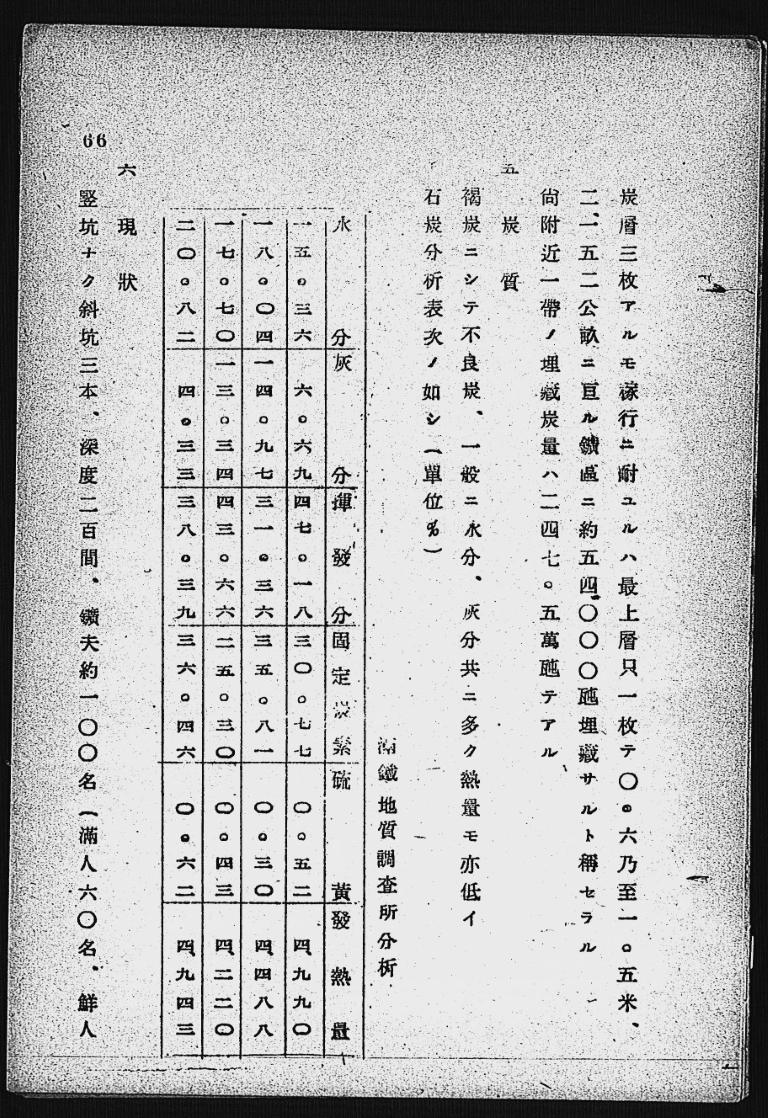 炭層三枚アルモ稼行ニ耐ユルハ最上層只一枚テ〇。六乃至一。五米、
二、一五二公畝ニ亘ル鑛區ニ約五四、〇〇〇瓲埋藏サルト稱セラル
尙附近一帶ノ埋藏炭量ハ二四七。五萬瓲テアル
五 炭質
褐炭ニシテ不良炭、一般ニ水分、灰分共ニ多ク熱量モ亦低イ
石炭分析表次ノ如シ(單位%)
滿鐵地質調査所分析
水分 灰分 揮發分 固定炭素 硫黃 發熱量
一五。三六 六。六九 四七。一八 三〇。七七 〇。五二 四、九九〇
一八。〇四 一四。九七 三一。三六 三五。八一 〇。三〇 四、四八八
一七。七〇 一三。三四 四三。六六 二五。三〇 〇。四三 四、二二〇
二〇。八二 四。三三 三八。三九 三六。四六 〇。六二 四、九四三
六 現狀
竪坑ナク斜坑三本、深度二百間、鑛夫約一〇〇名(滿人六〇名、鮮人
66